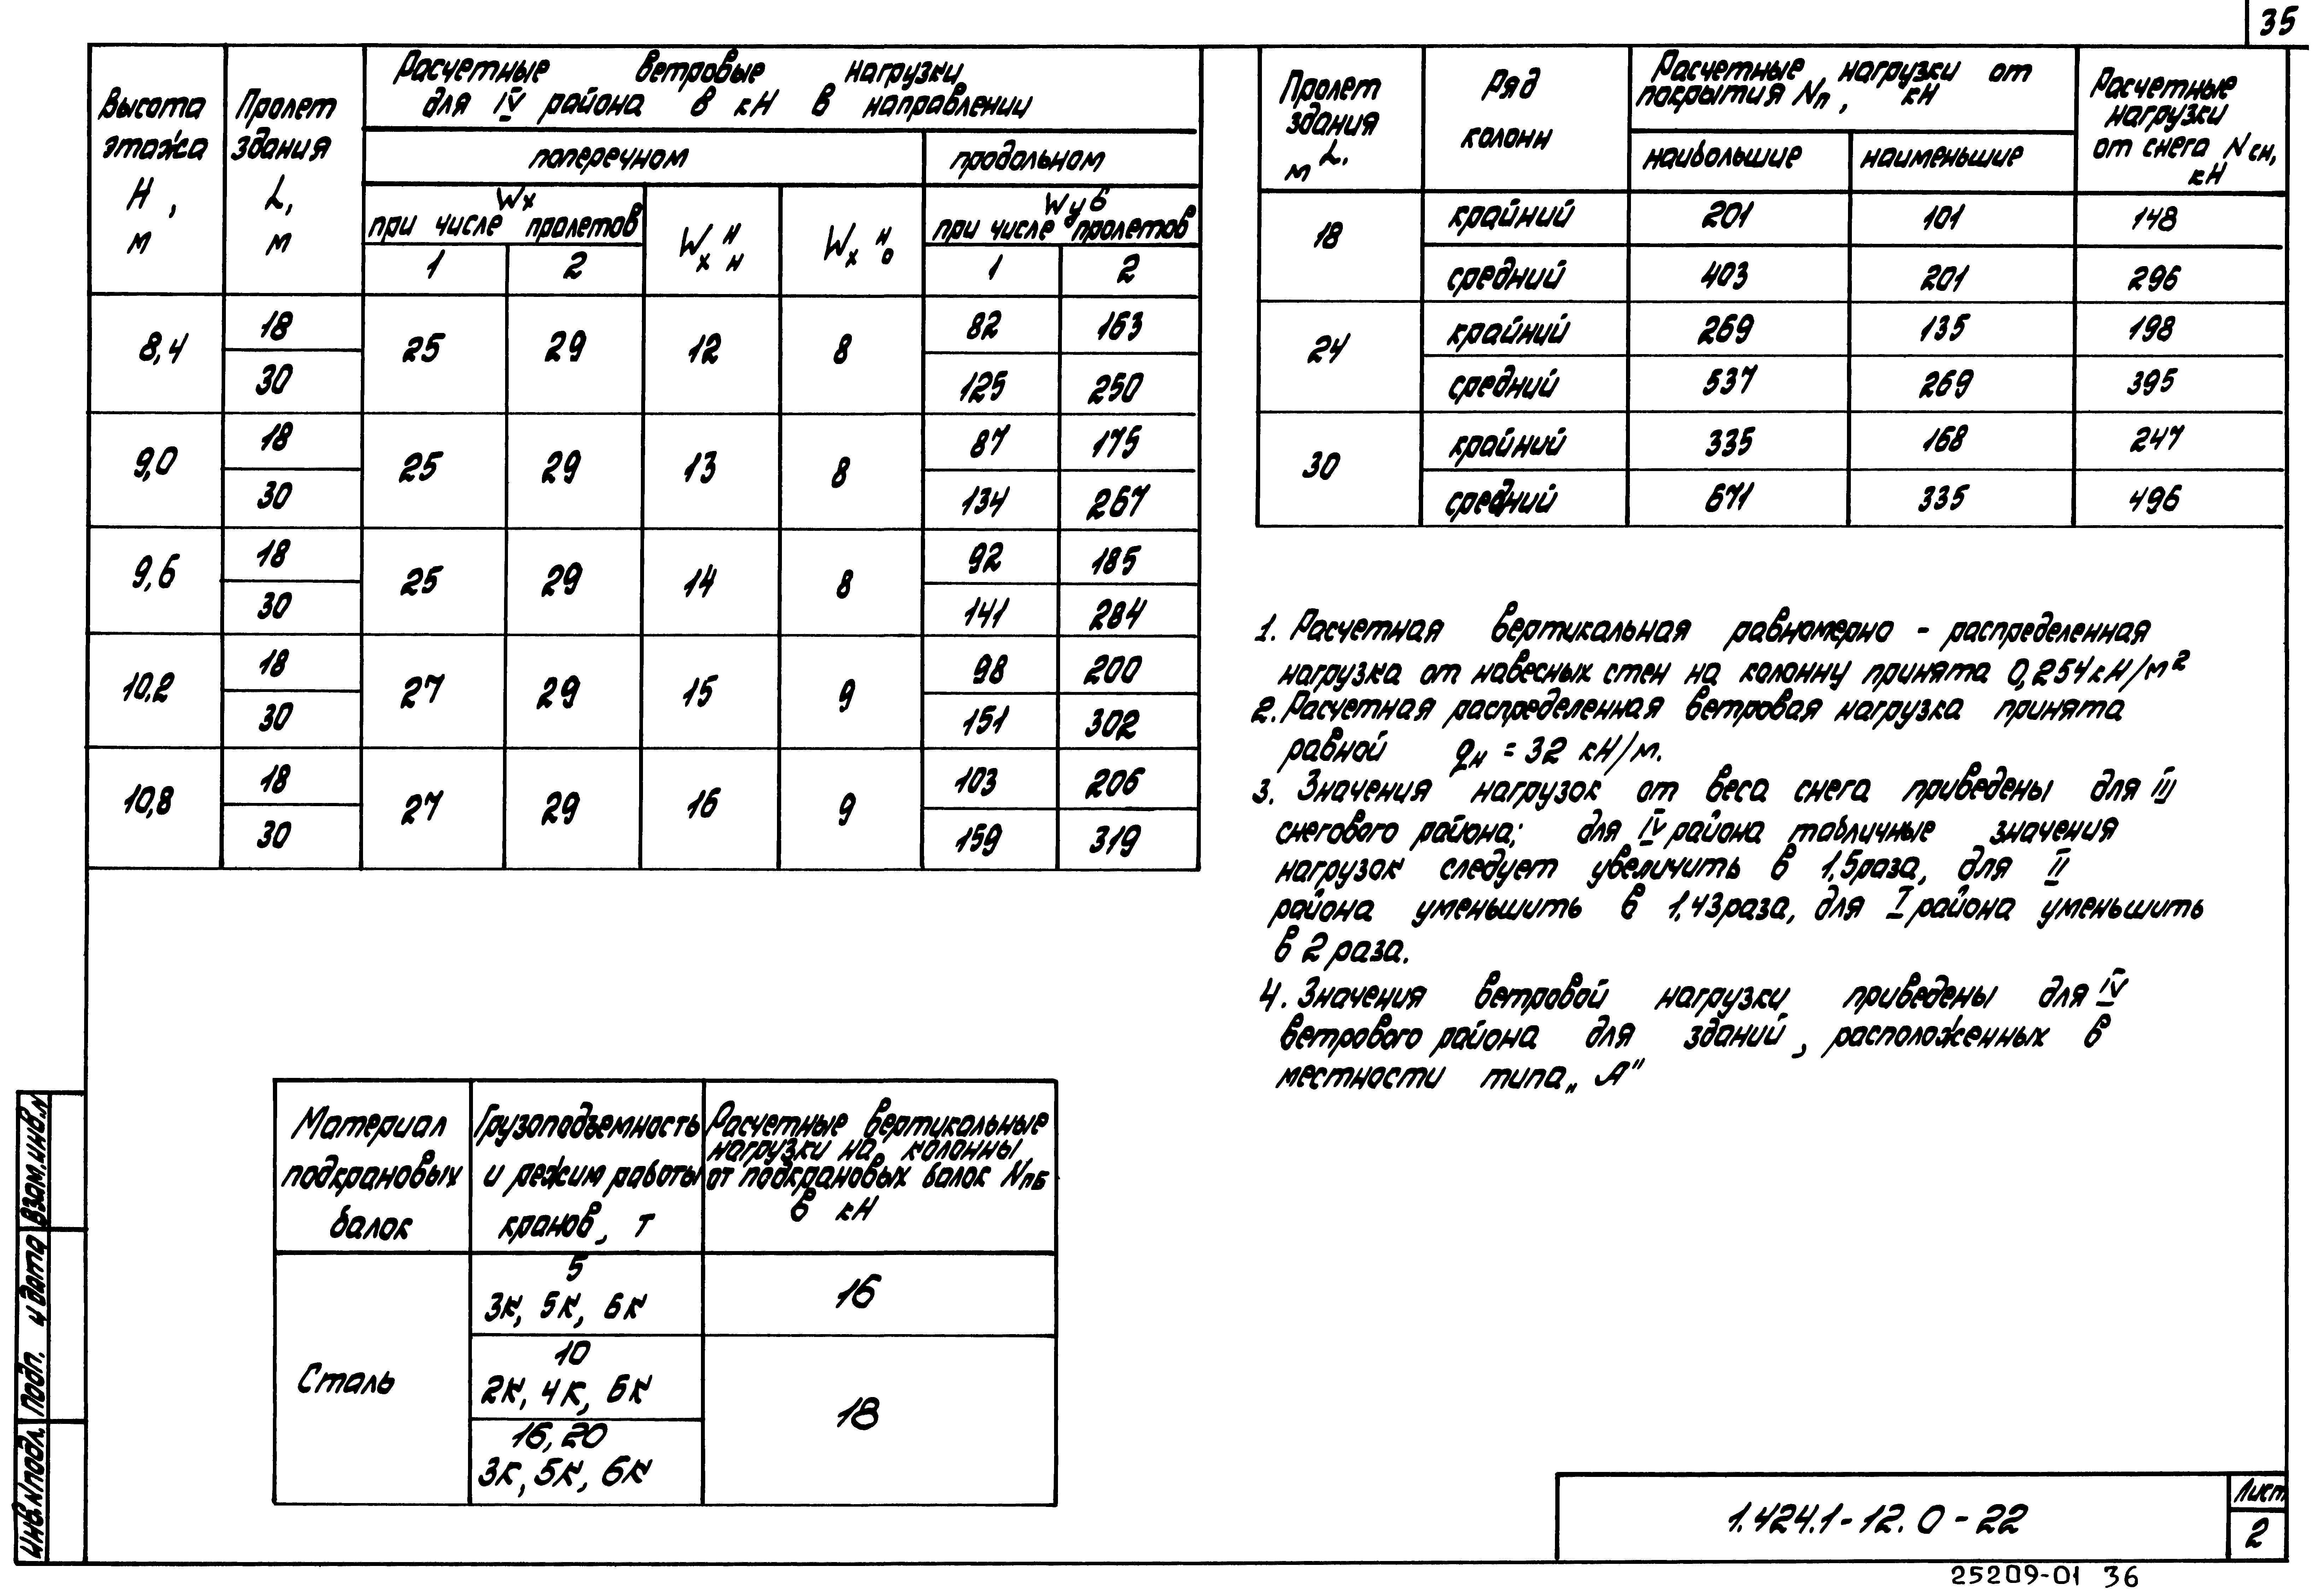 35
Высота Пролет Расчетные ветровые нагрузки
этажа здания для IV района в кН в направлении
H, L, поперечном продольном
м м Wx при числе пролетов Wx н н Wx н о Wyб при числе пролетов
1 2 1 2
8,4 18 25 29 12 8 82 163
30 125 250
9,0 18 25 29 13 8 87 175
30 134 267
9,6 18 25 29 14 8 92 185
30 141 284
10,2 18 27 29 15 9 98 200
30 151 302
10,8 18 27 29 16 9 103 206
30 159 319
Пролет здания L, м Ряд колонн Расчетные нагрузки от покрытия Nп, кН Расчетные нагрузки от снега Nсн, кН
наибольшие наименьшие
18 крайний 201 101 148
средний 403 201 296
24 крайний 269 135 198
средний 537 269 395
30 крайний 335 168 247
средний 671 335 496
1. Расчетная вертикальная равномерно - распределенная
нагрузка от навесных стен на колонну принята 0,254 кН/м²
2. Расчетная распределенная ветровая нагрузка принята
равной qн = 32 кН/м.
3. Значения нагрузок от веса снега приведены для III
снегового района; для IV района табличные значения
нагрузок следует увеличить в 1,5 раза, для II
района уменьшить в 1,43 раза, для I района уменьшить
в 2 раза.
4. Значения ветровой нагрузки приведены для IV
ветрового района для зданий, расположенных в
местности типа „А"
Материал Грузоподъемность Расчетные вертикальные
подкрановых и режим работы нагрузки на колонны
балок кранов, т от подкрановых балок Nпб
в кН
Сталь 5
3К, 5К, 6К 16
10
2К, 4К, 6К 18
16, 20
3К, 5К, 6К
Инв.N подл. Подп. и дата Взам.инв.N
1.424.1-12.0-22
Лист
2
25209-01 36